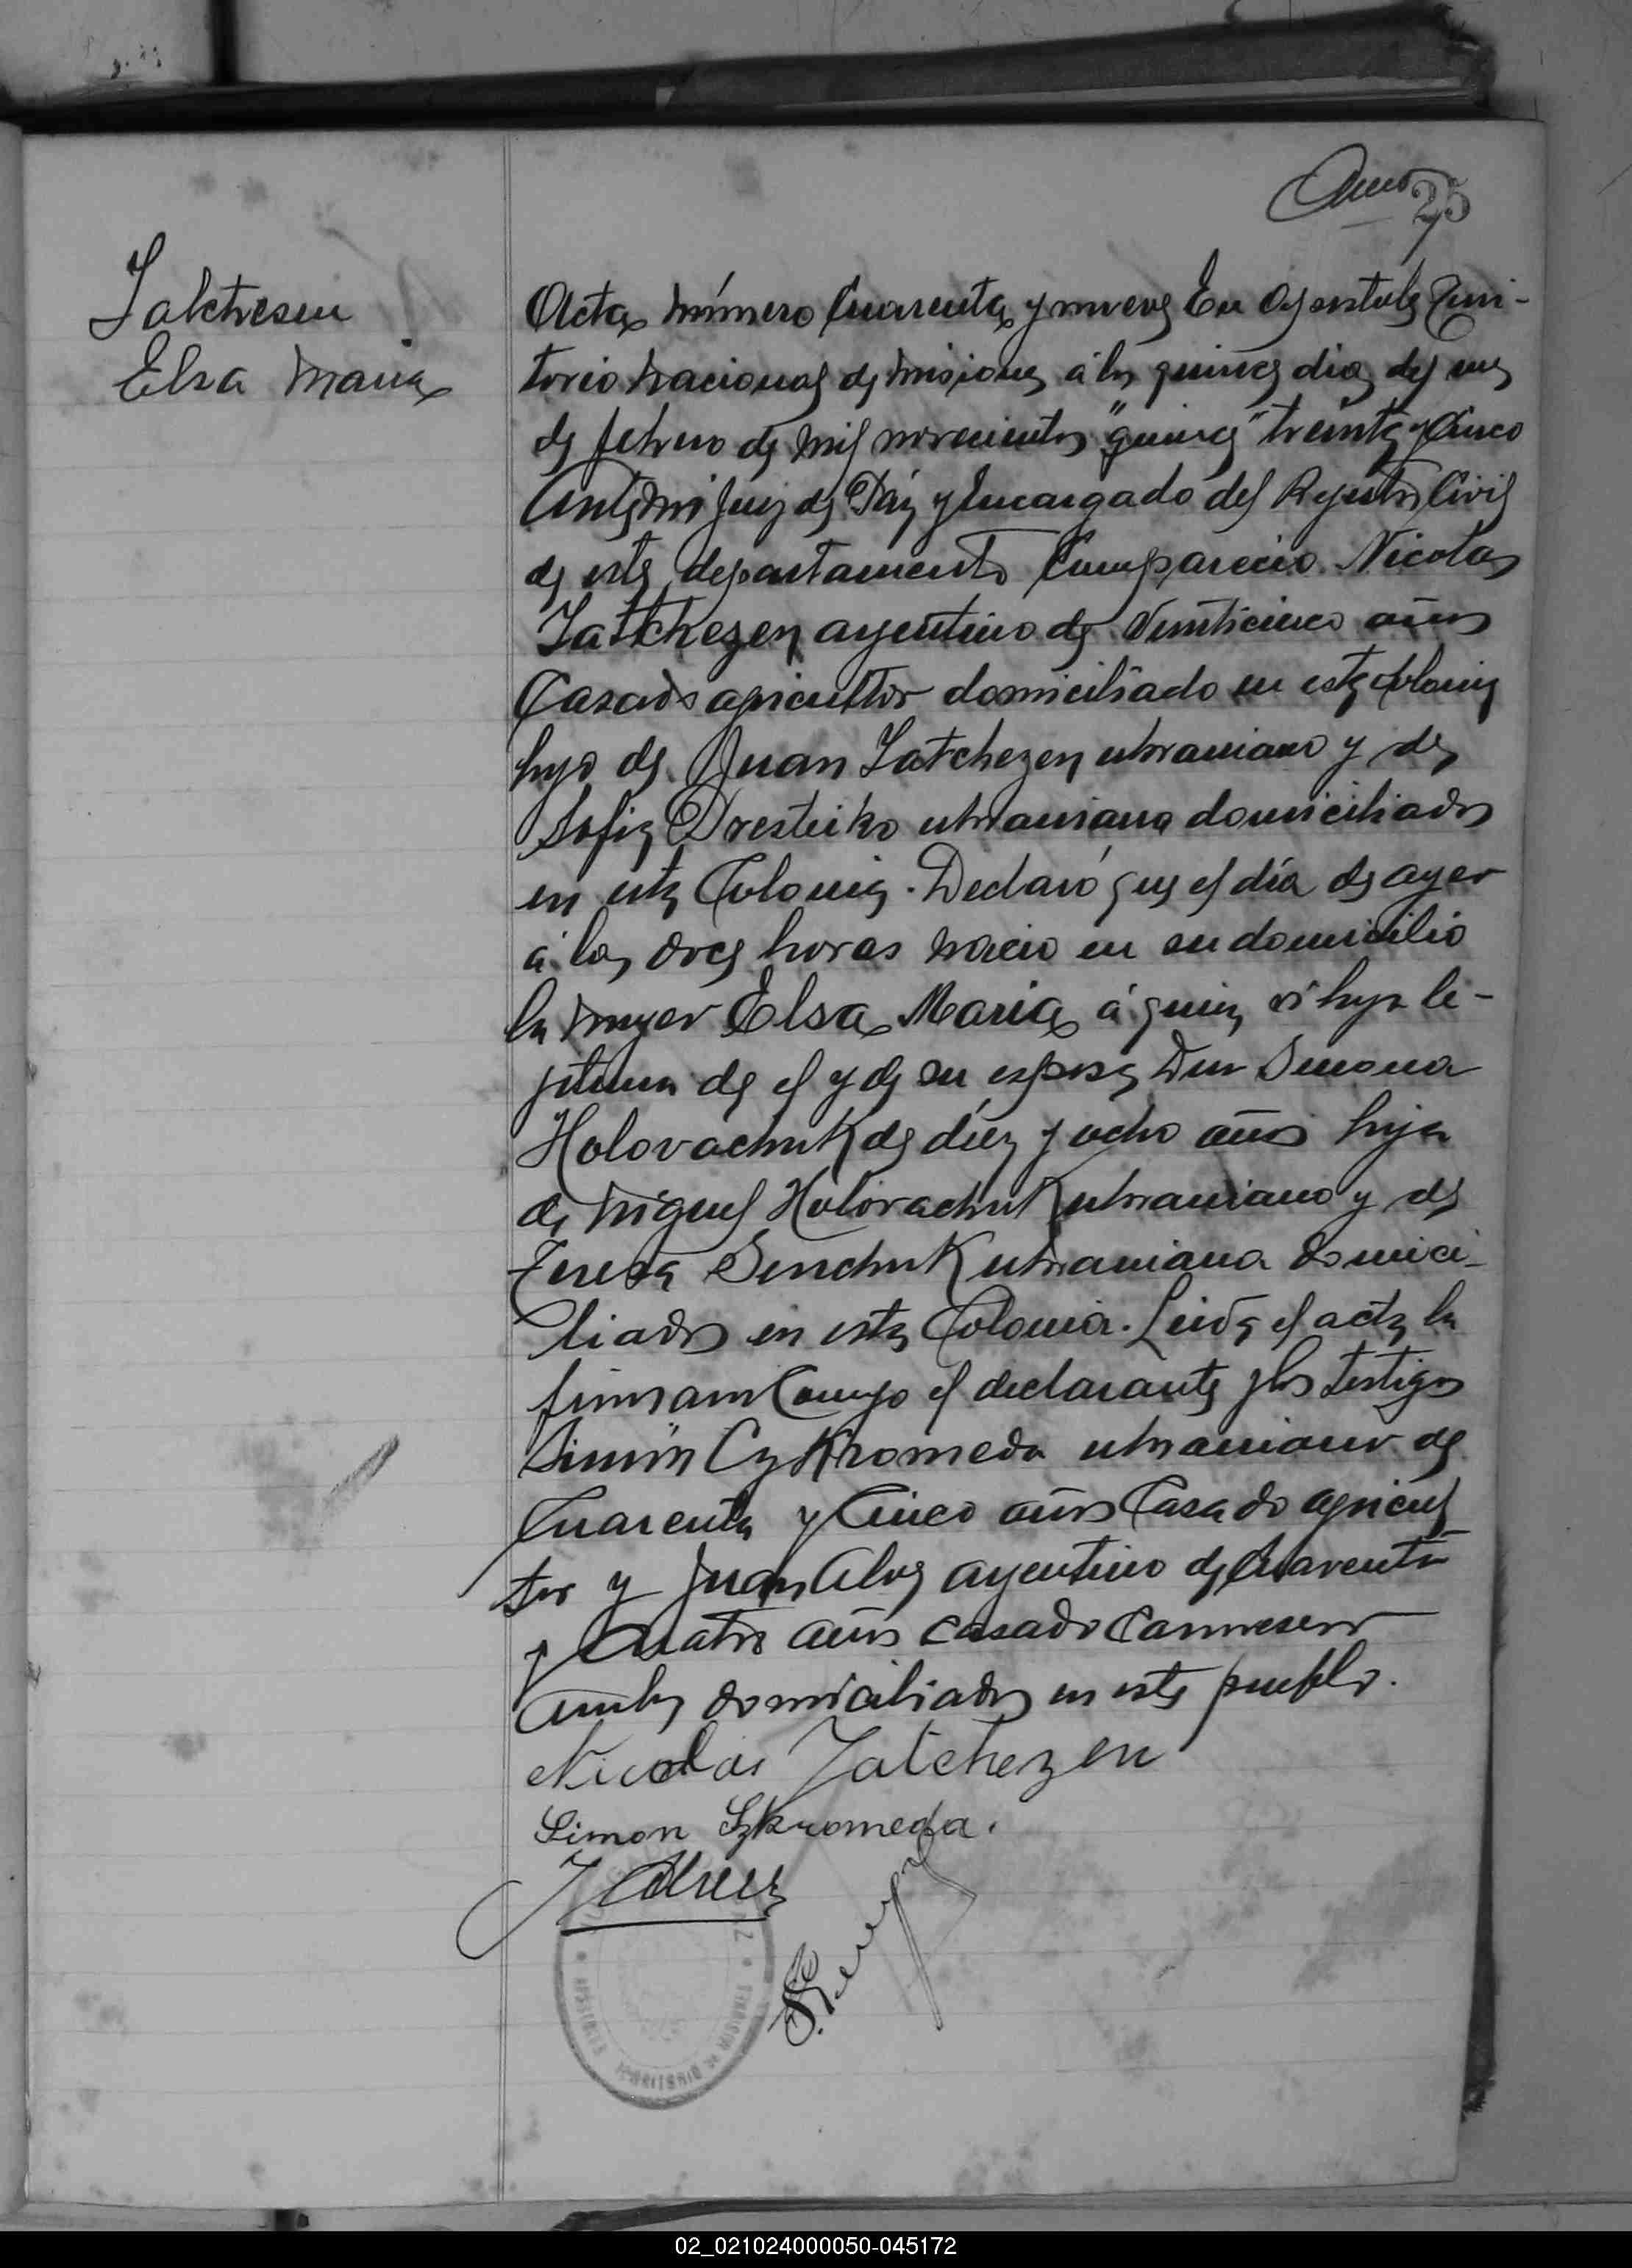 25
Jatchesen
Elsa Maria
Acta número Cuarenta y nueve En Apostoles Terri-
torio Nacional de Misiones á los quince dias del mes
de febrero de mil novecientos "quince" treinta y Cinco
Ante mi Juez de Paz y Encargado del Rejistro Civil
de este departamento Comparecio Nicolas
Jatchezen argentino de Veinticinco años
Casado agricultor domiciliado en esta Colonia
hijo de Juan Jatchezen ukraniano y de
Sofia Dresteiko ukraniana domiciliados
en esta Colonia. Declaró que el día de ayer
á las doce horas nacio en su domicilio
la mujer Elsa Maria á quien vi hija le-
jitima de el y de su esposa Simona
Holovachuk de diez y ocho años hija
de Miguel Holovachuk ukraniano y de
Teresa Senchuk ukraniana domici-
liados en esta Colonia. Leida el acta la
firmaron Conmigo el declarante y los testigos
Simón Czkromeda ukraniano de
Cuarenta y Cinco años Casado agricul
tor y Juan Alvez argentino de Cuarenta
y Cuatro años casado
ambos domiciliados en este pueblo.
Nicolas Jatchezen
Simon Szkromeda.
02_021024000050-045172